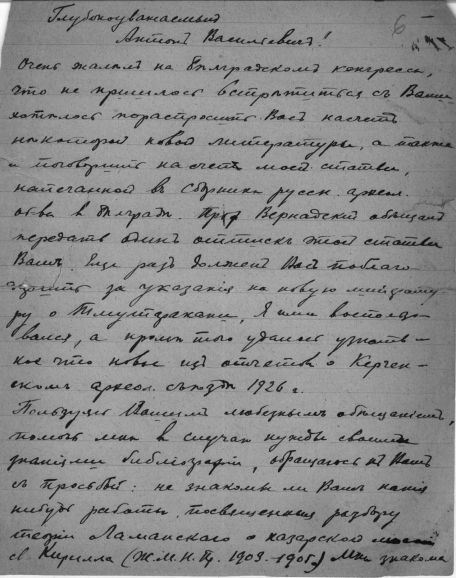 Глубокоуважаемый
6
Антонъ Васильевичъ!
Очень жалѣлъ на Бѣлградскомъ конгрессѣ,
что не пришлось встрѣтиться съ Вами
хотѣлось порасспросить Васъ насчетъ
нѣкоторой новой литературы, а также
и поговорить насчетъ моей статьи,
напечатанной въ Сборникѣ русск. археол.
об-ва в Бѣлградѣ. Проф Вернадскій обѣщалъ
передать одинъ оттискъ этой статьи
Вамъ. Еще разъ долженъ Васъ поблаго
дарить за указанія на новую литерату
ру о Тмутаракани, Я ими воспользо
вался, а кромѣ того удалось узнать
кое что новое изъ отчетовъ о Керчен-
скомъ археол. съѣздѣ 1926 г.
Пользуясь Вашимъ любезнымъ обѣщаніемъ,
помочь мнѣ в случаѣ нужды своими
знаніями библіографіи, обращаюсь къ Вамъ
съ просьбой: не знакомы ли Вамъ какія
нибудь работы, посвященныя разбору
теоріи Ламанскаго о хазарской миссіи
св. Кирилла (Ж.М.Н.Пр. 1903-1905) Мнѣ знакома